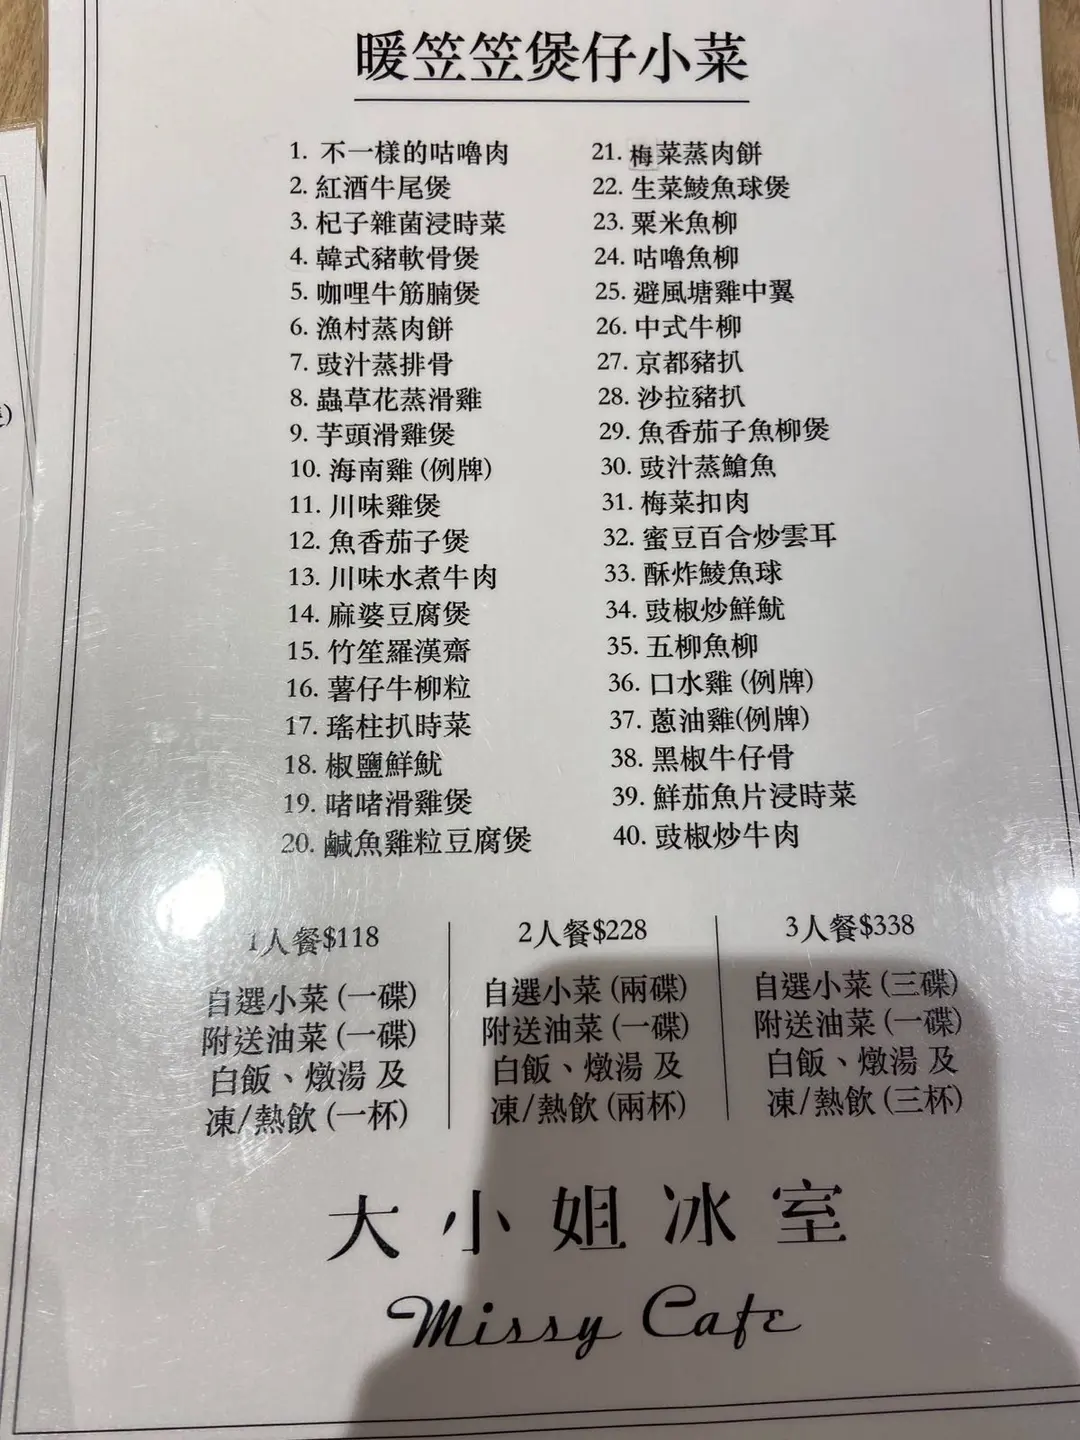 暖笠笠煲仔小菜
1. 不一樣的咕嚕肉
2. 紅酒牛尾煲
3. 杞子雜菌浸時菜
4. 韓式豬軟骨煲
5. 咖哩牛筋腩煲
6. 漁村蒸肉餅
7. 豉汁蒸排骨
8. 蟲草花蒸滑雞
9. 芋頭滑雞煲
10. 海南雞 (例牌)
11. 川味雞煲
12. 魚香茄子煲
13. 川味水煮牛肉
14. 麻婆豆腐煲
15. 竹笙羅漢齋
16. 薯仔牛柳粒
17. 瑤柱扒時菜
18. 椒鹽鮮魷
19. 啫啫滑雞煲
20. 鹹魚雞粒豆腐煲
21. 梅菜蒸肉餅
22. 生菜鯪魚球煲
23. 粟米魚柳
24. 咕嚕魚柳
25. 避風塘雞中翼
26. 中式牛柳
27. 京都豬扒
28. 沙拉豬扒
29. 魚香茄子魚柳煲
30. 豉汁蒸鯧魚
31. 梅菜扣肉
32. 蜜豆百合炒雲耳
33. 酥炸鯪魚球
34. 豉椒炒鮮魷
35. 五柳魚柳
36. 口水雞 (例牌)
37. 蔥油雞(例牌)
38. 黑椒牛仔骨
39. 鮮茄魚片浸時菜
40. 豉椒炒牛肉
1人餐$118
自選小菜 (一碟)
附送油菜 (一碟)
白飯、燉湯 及
凍/熱飲 (一杯)
2人餐$228
自選小菜 (兩碟)
附送油菜 (一碟)
白飯、燉湯 及
凍/熱飲 (兩杯)
3人餐$338
自選小菜 (三碟)
附送油菜 (一碟)
白飯、燉湯 及
凍/熱飲 (三杯)
大小姐冰室
Missy Cafe